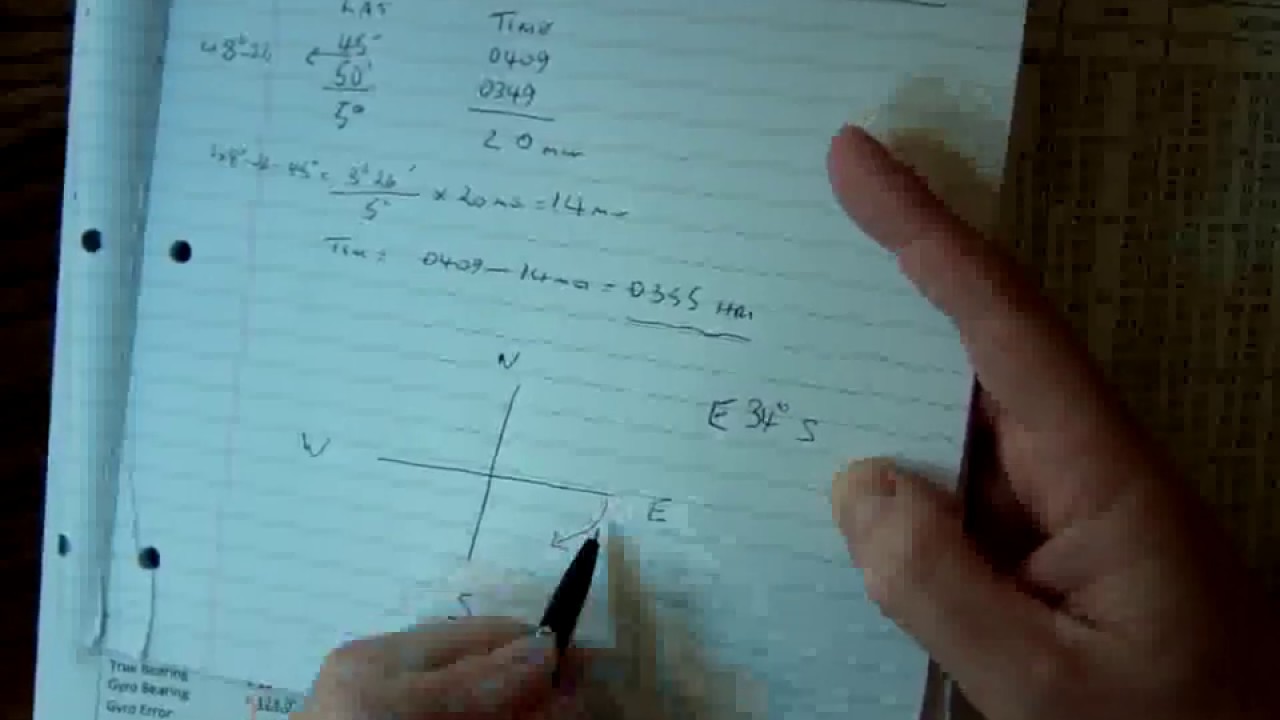 LAT TIME
48°-26 45° 0409
50° 0349
5° 20 min
48°-26-45° = 3°26'
5° × 20 min = 14 min
Time = 0409 - 14 min = 0355 HRS
N
E 34° S
W
E
S
True Bearing
Gyro Bearing
Gyro Error